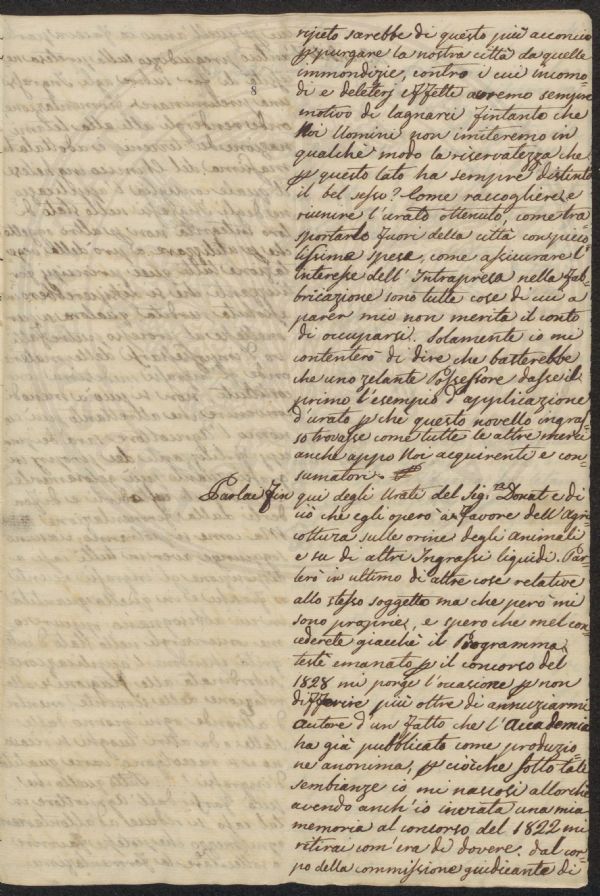 8
ripeto sarebbe di questo più acconcio
p purgare la nostra città da quelle
immondizie, contro i cui incomo-
di e deleterj effetti avremo sempre
motivo di lagnarci fintanto che
Noi Uomini non imiteremo in
qualche modo la riservatezza che
p questo lato ha sempre distinto
il bel sesso? Come raccogliere e
riunire l'urato ottenuto, come tra
sportarlo fuori della città con picco-
lissima spesa, come assicurare l'
interesse dell'Intrapresa nella fab-
bricazione sono tutte cose di cui a
parer mio non merita il conto
di occuparsi. Solamente io mi
contenterò di dire che basterebbe
che uno zelante Possessore dasse il
primo l'esempio d'applicazione
d'urato p che questo novello ingras-
so trovasse come tutte le altre merci
anche appo Noi acquirenti e con-
sumatori.
Parlai fin qui degli Urati del Sig.r Donat e di
ciò che egli operò a favore dell'Agri
coltura sulle orine degli animali
e su di altri Ingrassi liquidi. Par-
lerò in ultimo di altre cose relative
allo stesso soggetto ma che però mi
sono proprie, e spero che mel con
cederete giacchè il Programma
testè emanato p il concorso del
1828 mi porge l'ocasione p non
differire più oltre di annuziarmi
autore d'un fatto che l'Accademia
ha già pubblicato come produzio
ne anonima, p ciòche sotto tale
sembianze io mi nascosi allorchè
avendo anch'io inviata una mia
memoria al concorso del 1822 mi
ritirai com'era di dovere dal cor-
po della commissione giudicante di